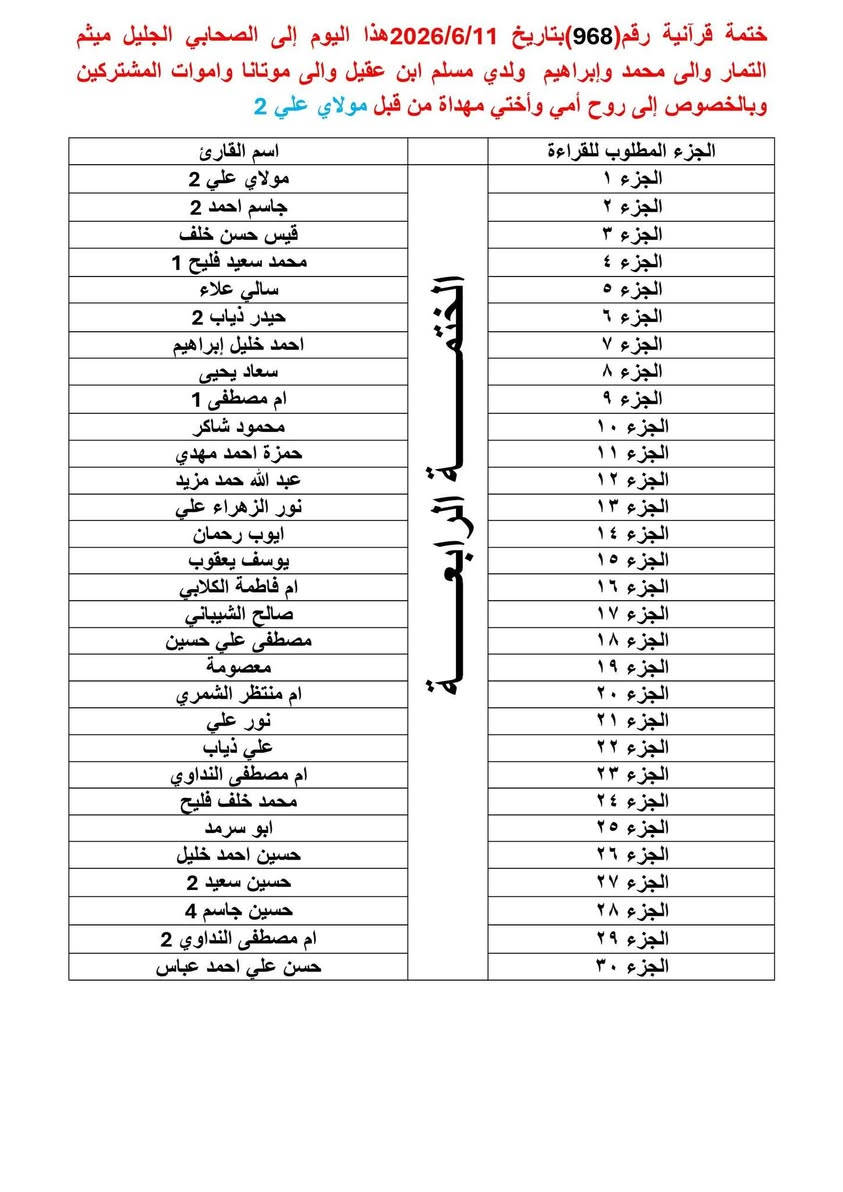 ختمة قرآنية رقم(968)بتاريخ 2026/6/11هذا اليوم إلى الصحابي الجليل ميثم
التمار والى محمد وإبراهيم ولدي مسلم ابن عقيل والى موتانا واموات المشتركين
وبالخصوص إلى روح أمي وأختي مهداة من قبل مولاي علي 2
الجزء المطلوب للقراءة اسم القارئ
الجزء ١ مولاي علي 2
الجزء ٢ جاسم احمد 2
الجزء ٣ قيس حسن خلف
الجزء ٤ محمد سعيد فليح 1
الجزء ٥ سالي علاء
الجزء ٦ حيدر ذياب 2
الجزء ٧ احمد خليل إبراهيم
الجزء ٨ سعاد يحيى
الجزء ٩ ام مصطفى 1
الجزء ١٠ محمود شاكر
الجزء ١١ حمزة احمد مهدي
الجزء ١٢ عبد الله حمد مزيد
الجزء ١٣ نور الزهراء علي
الجزء ١٤ ايوب رحمان
الجزء ١٥ يوسف يعقوب
الجزء ١٦ ام فاطمة الكلابي
الجزء ١٧ صالح الشيباني
الجزء ١٨ مصطفى علي حسين
الجزء ١٩ معصومة
الجزء ٢٠ ام منتظر الشمري
الجزء ٢١ نور علي
الجزء ٢٢ علي ذياب
الجزء ٢٣ ام مصطفى النداوي
الجزء ٢٤ محمد خلف فليح
الجزء ٢٥ ابو سرمد
الجزء ٢٦ حسين احمد خليل
الجزء ٢٧ حسين سعيد 2
الجزء ٢٨ حسين جاسم 4
الجزء ٢٩ ام مصطفى النداوي 2
الجزء ٣٠ حسن علي احمد عباس
الختمـــــــة الرابعـــــــة